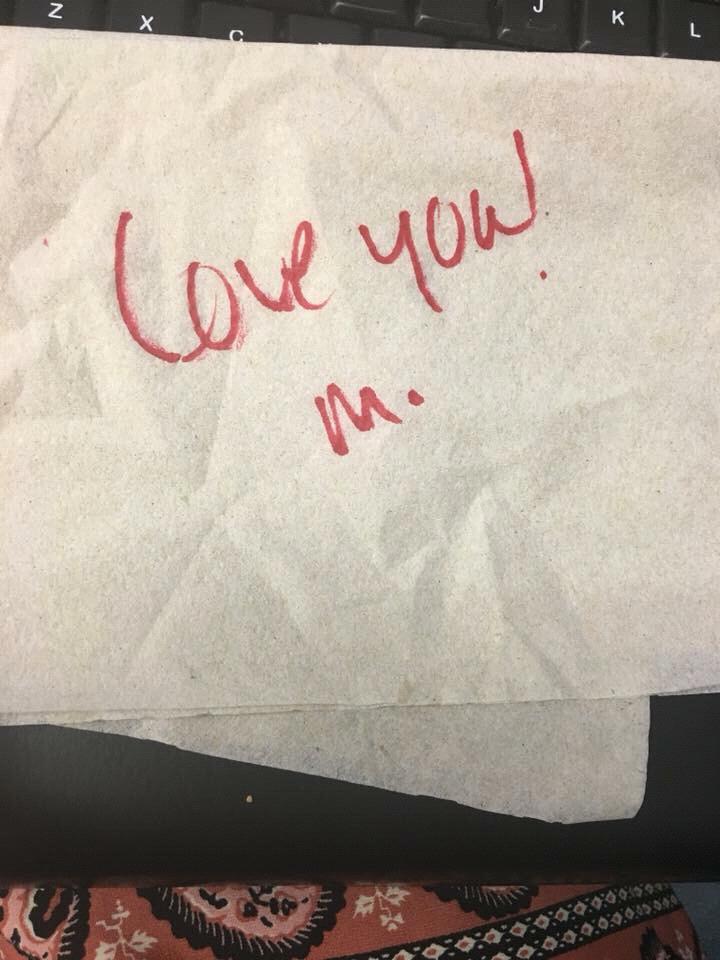 Z X C J K L
Love you!
M.